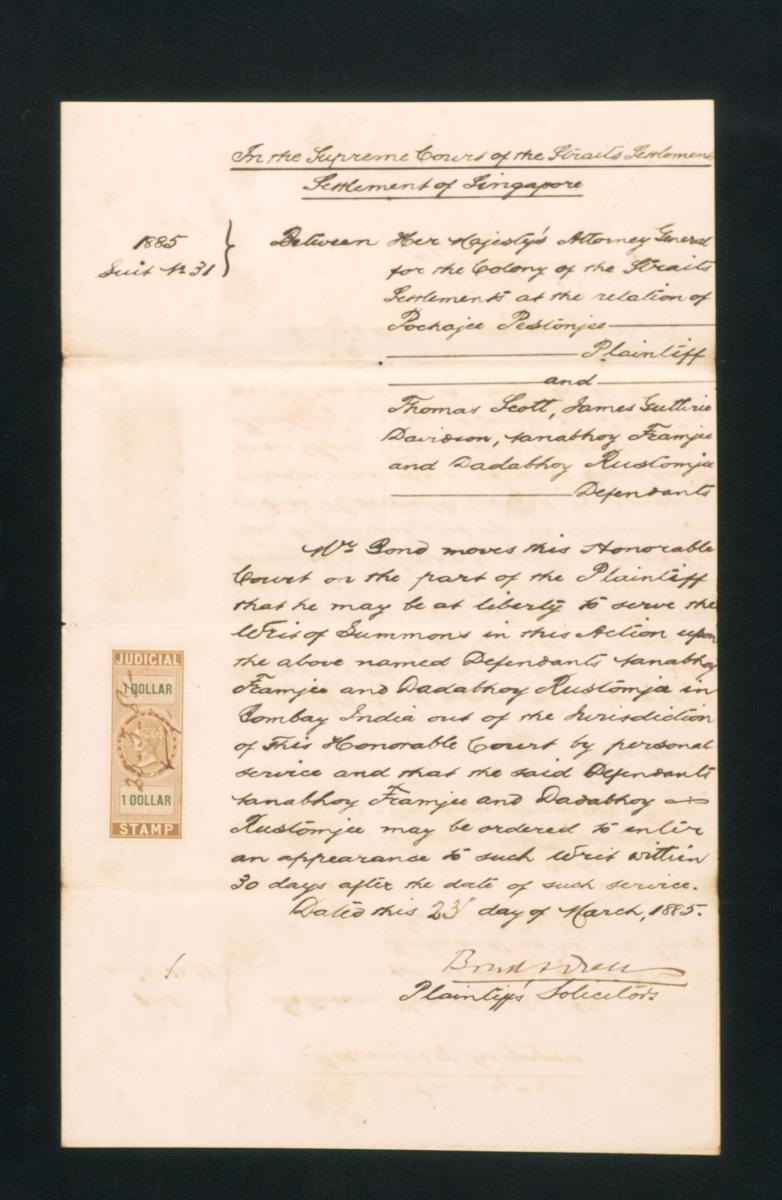 In the Supreme Court of the Straits Settlements
Settlement of Singapore
1885
Suit No 31
Between Her Majesty's Attorney General
for the Colony of the Straits
Settlements at the relation of
Pochajee Pestonjee
Plaintiff
and
Thomas Scott, James Guthrie
Davidson, Nanabhoy Framjee
and Dadabhoy Rustomjee
Defendants
Mr. Bond moves this Honorable
Court on the part of the Plaintiff
that he may be at liberty to serve the
Writ of Summons in this Action upon
the above named Defendants Nanabhoy
Framjee and Dadabhoy Rustomjee in
Bombay India out of the Jurisdiction
of this Honorable Court by personal
service and that the said Defendants
Nanabhoy Framjee and Dadabhoy
Rustomjee may be ordered to enter
an appearance to such Writ within
30 days after the date of such service.
Dated this 23 day of March, 1885.
Plaintiff's Solicitors
JUDICIAL
1 DOLLAR
1 DOLLAR
STAMP